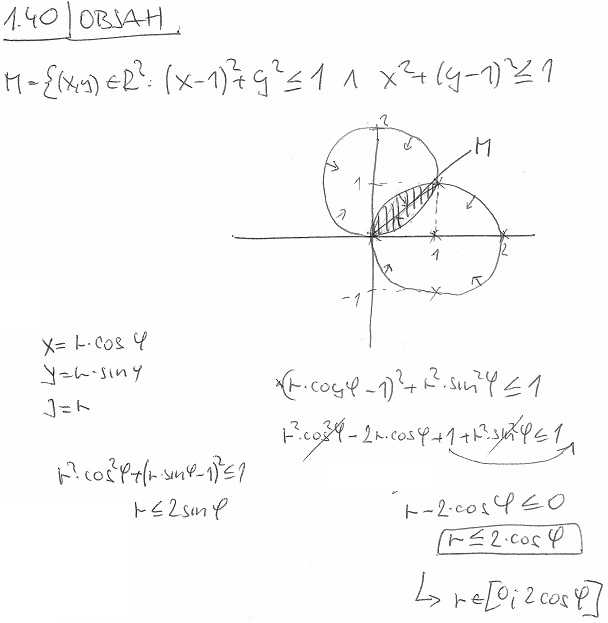 1.40 | OBSAH
M = {(x,y) ∈ R²: (x-1)² + y² ≤ 1 ∧ x² + (y-1)² ≤ 1
2
M
1
1
2
-1
x = r·cos φ
y = r·sin φ
J = r
(r·cos φ - 1)² + r²·sin²φ ≤ 1
r²·cos²φ - 2r·cos φ + 1 + r²·sin²φ ≤ 1
r²·cos²φ + (r·sin φ - 1)² ≤ 1
r ≤ 2 sin φ
r - 2·cos φ ≤ 0
r ≤ 2·cos φ
↳ r ∈ [0; 2 cos φ]